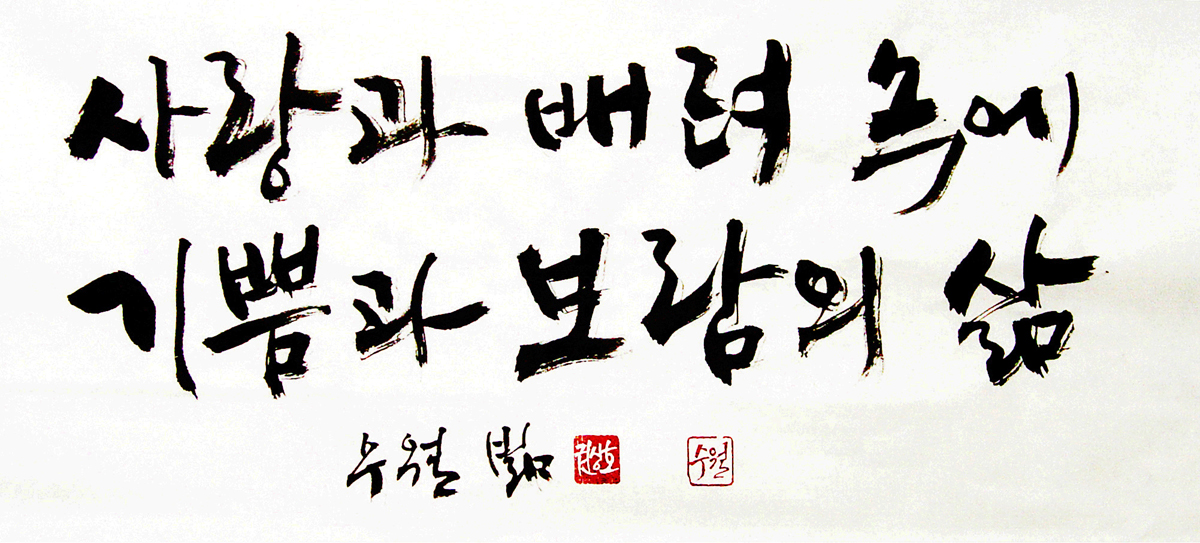 사랑과 배려 속에
기쁨과 보람의 삶
수월
수월